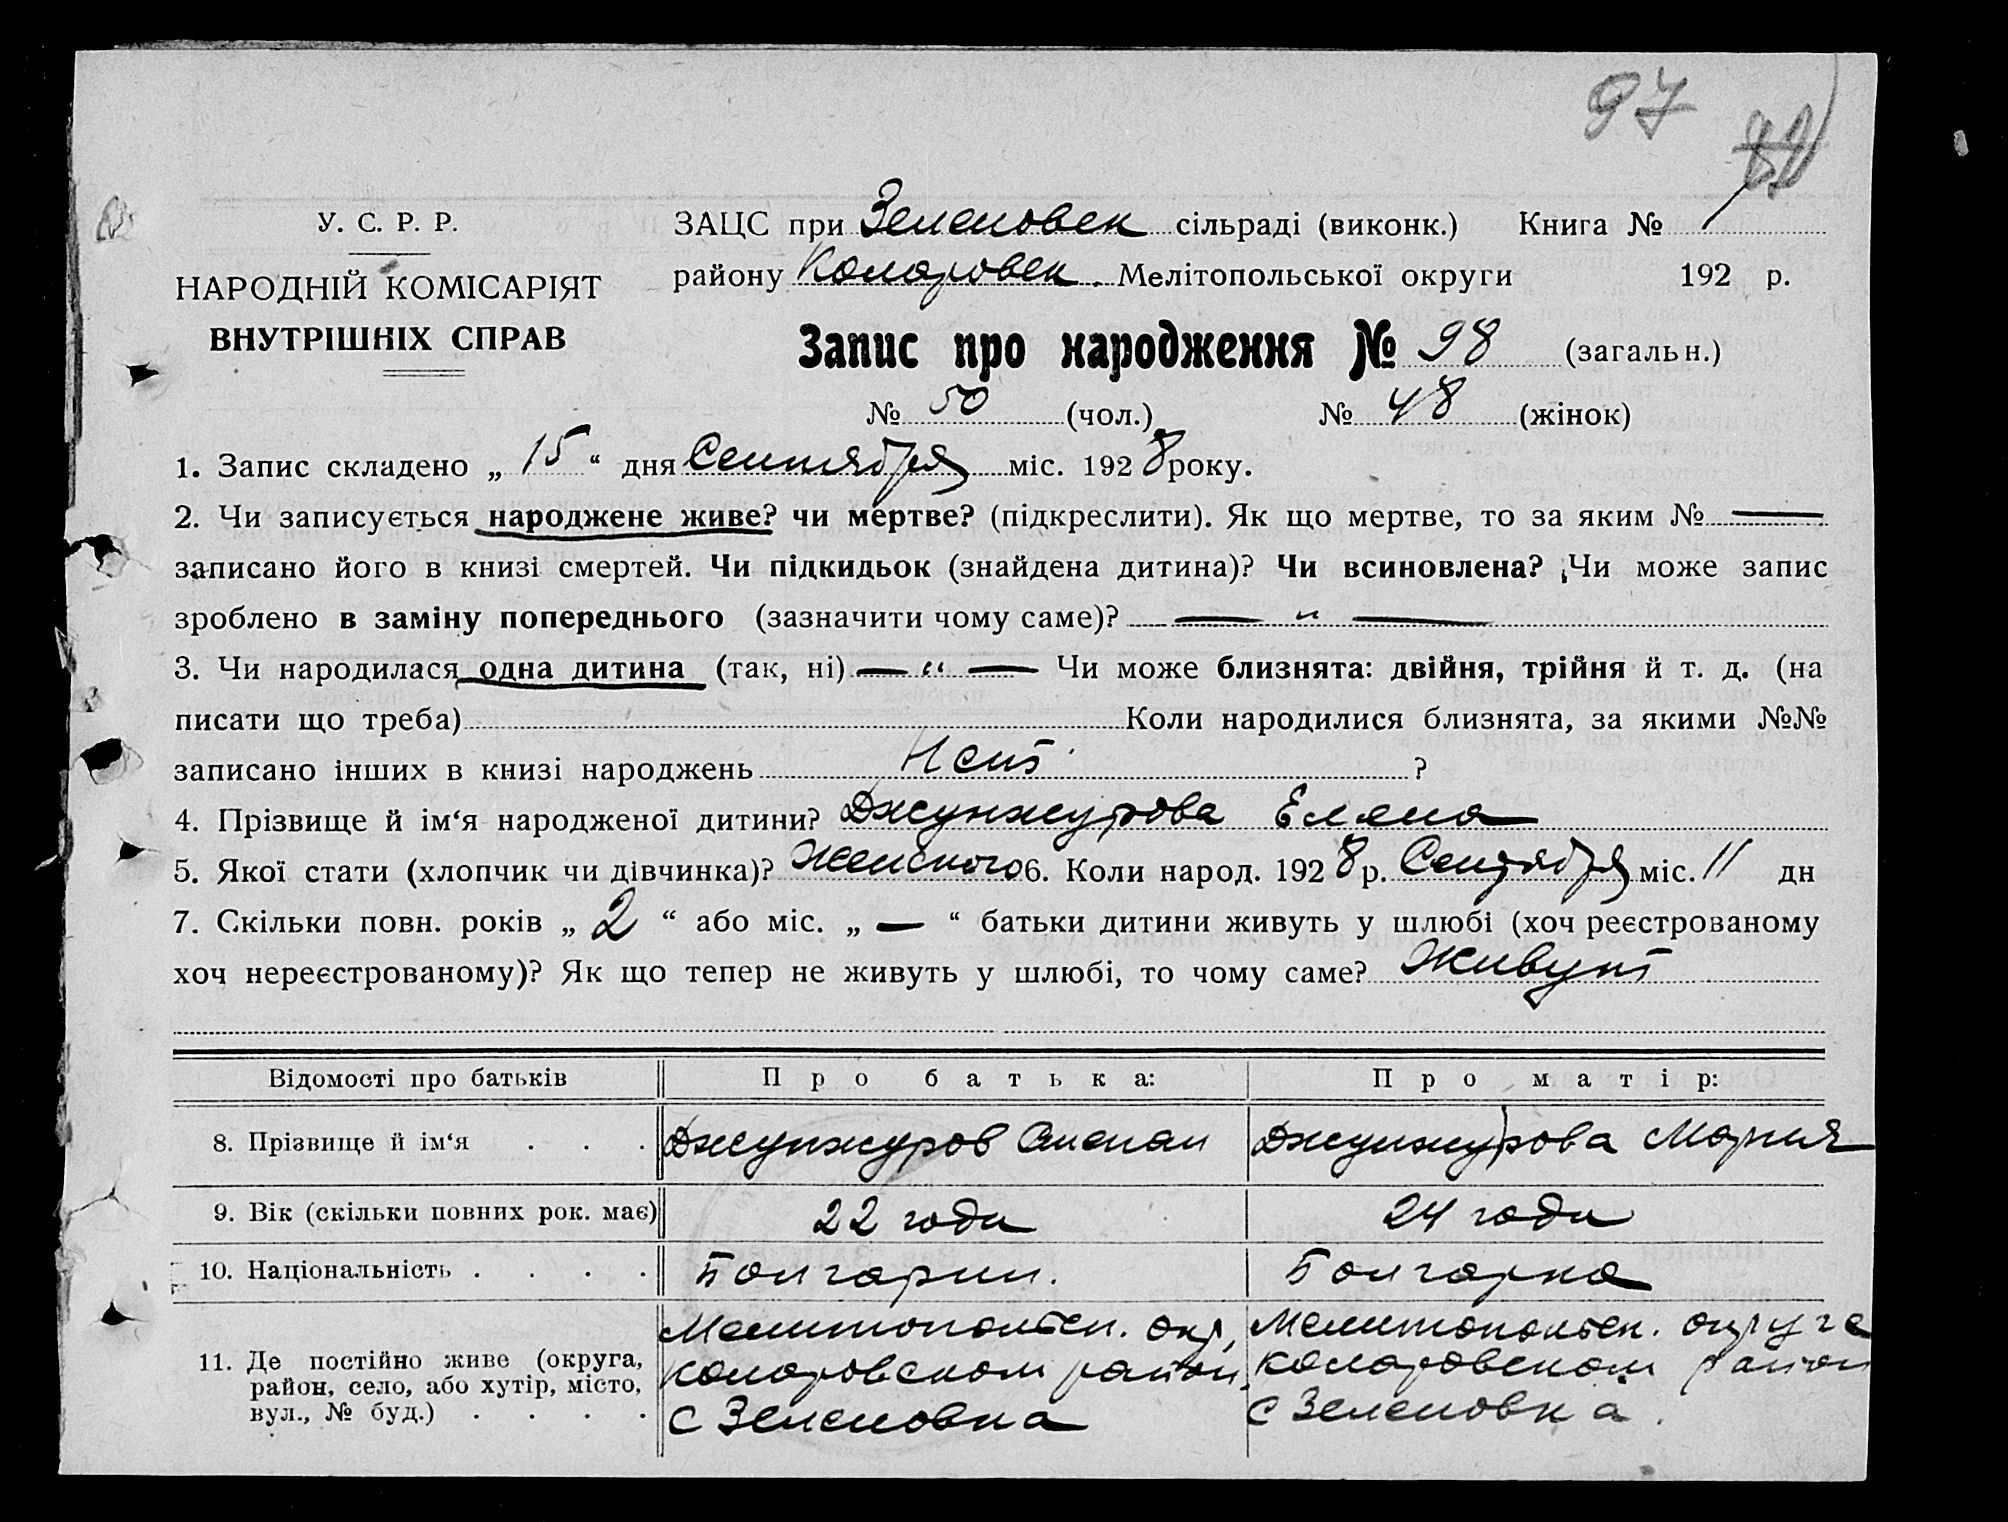 97
У. С. Р. Р.
ЗАЦС при Зеленовск сільраді (виконк.) Книга № 1
НАРОДНІЙ КОМІСАРІЯТ
району Коларовск. Мелітопольської округи 192 р.
ВНУТРІШНІХ СПРАВ
Запис про народження № 98 (загальн.)
№ 50 (чол.) № 48 (жінок)
1. Запис складено „ 15 “ дня Сентября міс. 1928 року.
2. Чи записується народжене живе? чи мертве? (підкреслити). Як що мертве, то за яким № —
записано його в книзі смертей. Чи підкидьок (знайдена дитина)? Чи всиновлена? Чи може запис
зроблено в заміну попереднього (зазначити чому саме)? — „ —
3. Чи народилася одна дитина (так, ні) — „ — Чи може близнята: двійня, трійня й т. д. (на
писати що треба) Коли народилися близнята, за якими №№
записано інших в книзі народжень Нет ?
4. Прізвище й ім‘я народженої дитини? Джунжурова Елена
5. Якої стати (хлопчик чи дівчинка)? Женского 6. Коли народ. 1928 р. Сентября міс. 11 дн
7. Скільки повн. років „ 2 “ або міс. „ — “ батьки дитини живуть у шлюбі (хоч реєстрованому
хоч нереєстрованому)? Як що тепер не живуть у шлюбі, то чому саме? Живут
Відомості про батьків Про батька: Про матір:
8. Прізвище й ім‘я . . . Джунжуров Степан Джунжурова Мария
9. Вік (скільки повних рок. має) 22 года 24 года
10. Національність . . . . Болгарин. Болгарка
Мелитопольск. окр, Мелитопольск. округа
11. Де постійно живе (округа, Коларовском район, Коларовском район
район, село, або хутір, місто,
вул., № буд.) . . . . с Зеленовка с Зеленовка.